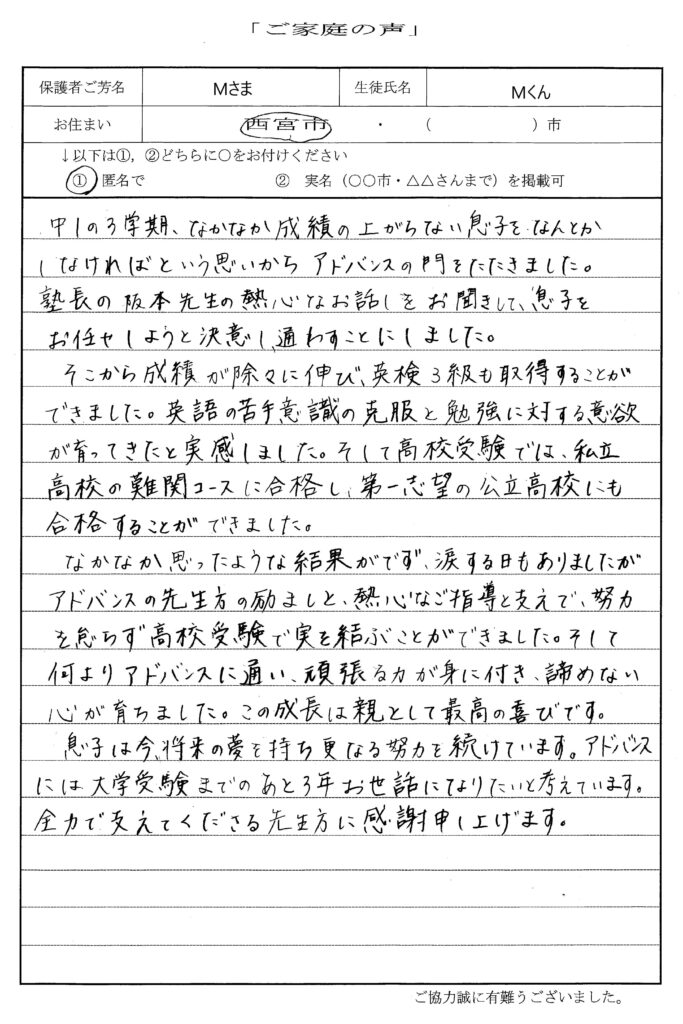 「ご家庭の声」
保護者ご芳名 Mさま 生徒氏名 Mくん
お住まい 西宮市 ・ ( )市
↓以下は①,②どちらに○をお付けください
① 匿名で ② 実名(○○市・△△さんまで)を掲載可
中1の3学期、なかなか成績の上がらない息子をなんとか
しなければという思いからアドバンスの門をたたきました。
塾長の阪本先生の熱心なお話しをお聞きして、息子を
お任せしようと決意し、通わすことにしました。
そこから成績が除々に伸び、英検3級も取得することが
できました。英語の苦手意識の克服と勉強に対する意欲
が育ってきたと実感しました。そして高校受験では、私立
高校の難関コースに合格し、第一志望の公立高校にも
合格することができました。
なかなか思ったような結果がでず、涙する日もありましたが
アドバンスの先生方の励ましと、熱心なご指導と支えで、努力
を怠らず高校受験で実を結ぶことができました。そして
何よりアドバンスに通い、頑張る力が身に付き、諦めない
心が育ちました。この成長は親として最高の喜びです。
息子は今、将来の夢を持ち更なる努力を続けています。アドバンス
には大学受験までのあと3年お世話になりたいと考えています。
全力で支えてくださる先生方に感謝申し上げます。
ご協力誠に有難うございました。